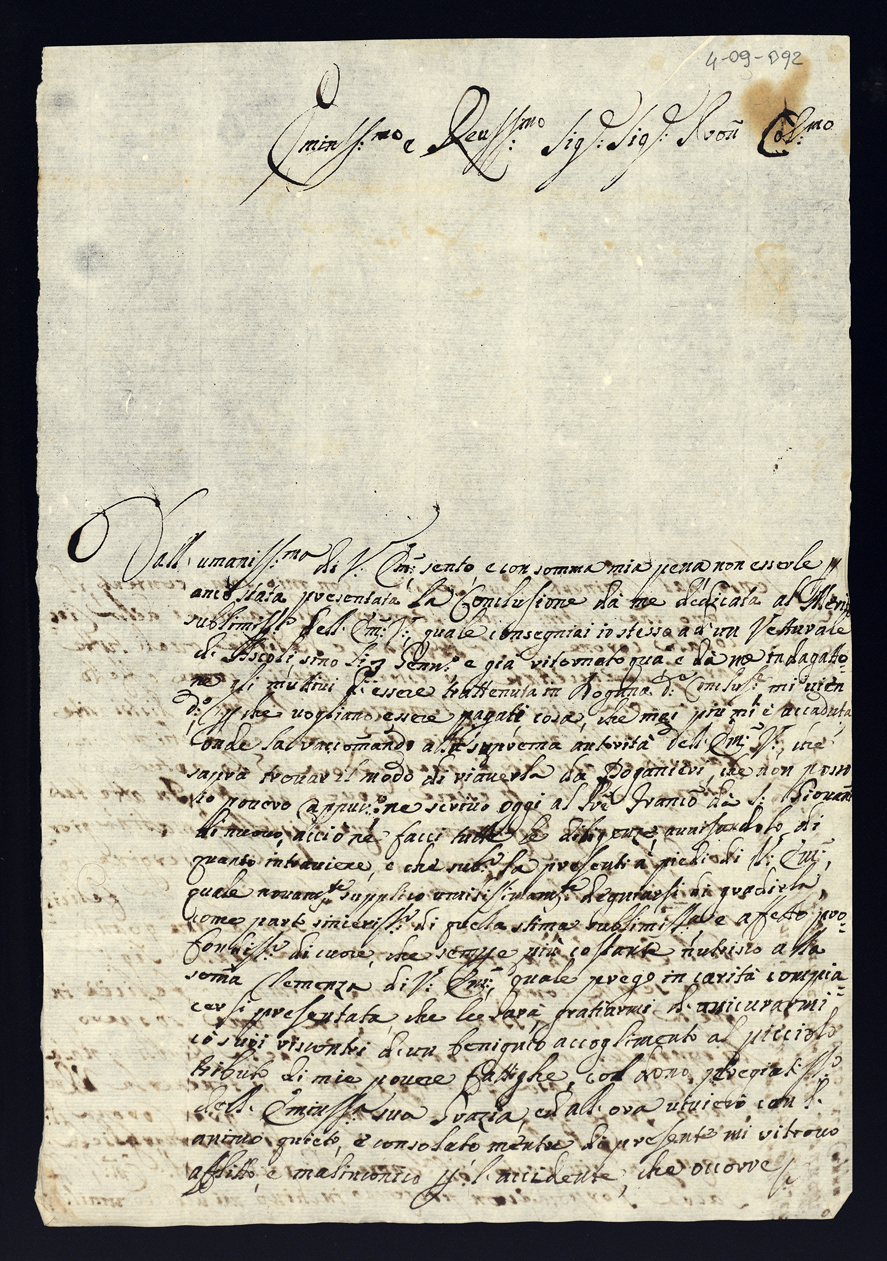 4-09-D92
Eminss:mo e Reuss:mo Sig:r Sig:r Pron Col:mo
Dall' umaniss:ma di V: Em: sento, e con somma mia pena, non esserle
anco stata presentata la Conclusione da me dedicata al Meri
sublimiss:o dell' Em: V:, quale consegniai io stesso ad un Vetturale
di Ascoli, sino li 7 e già ritornato quà e da me indagato-
ne gli mottivi d' essere trattenuta in Dogana d:a Conclus:e mi vien
d:o che vogliano essere pagati, cosa, che mai più mi è accaduta
Onde la raccomando alla suprema autorità dell' Em: V:, che
saprà trovar il modo di riaverla da Doganieri, che non
io povero ne scrivo oggi al Pre Franco da S: Giovan
di nuovo, acciò ne facci tutte le diligenze, avvisandolo di
quanto intraviene, e che sub:o la presenti a piedi di V: Em:,
quale novam:te supplico umilissimam:te degnarsi di gradirla,
come parte sinceriss:a di quella stima sublimissa, e affetto pro-
fondiss:o di cuore, che sempre più costante nutrisco alla
soma Clemenza di V: Em:, quale prego in carità compia
cersi presentata, che le sarà, gratiarmi d' assicurarmi
co suoi riscontri d' un benignio accoglimento al picciolo
tributo di mie povere fattighe, col dono pregiatiss:o
dell' Eminss:a sua Grazia, ed all' ora viverò con
animo quieto, e consolato mentre di presente mi ritrovo
afflitto, e malinconico p l' accidente, che occorre